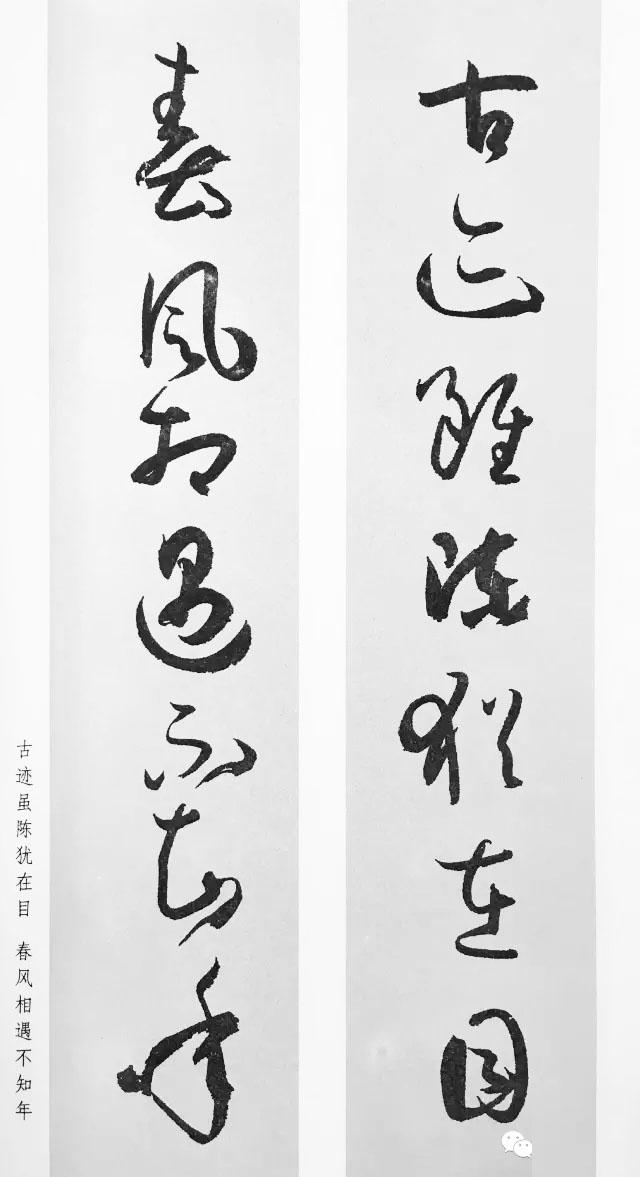 古迹雖陳猶在目
春風相遇不知年
古迹虽陈犹在目 春风相遇不知年